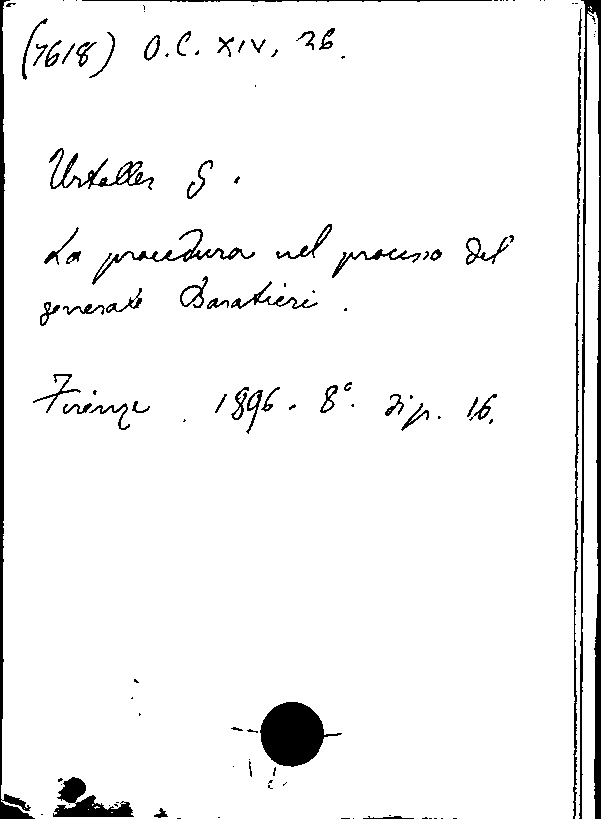 (7618) O.C. XIV, 26.
Urtoller G.
La procedura nel processo del
generale Baratieri.
Firenze. 1896. 8°. di p. 16.